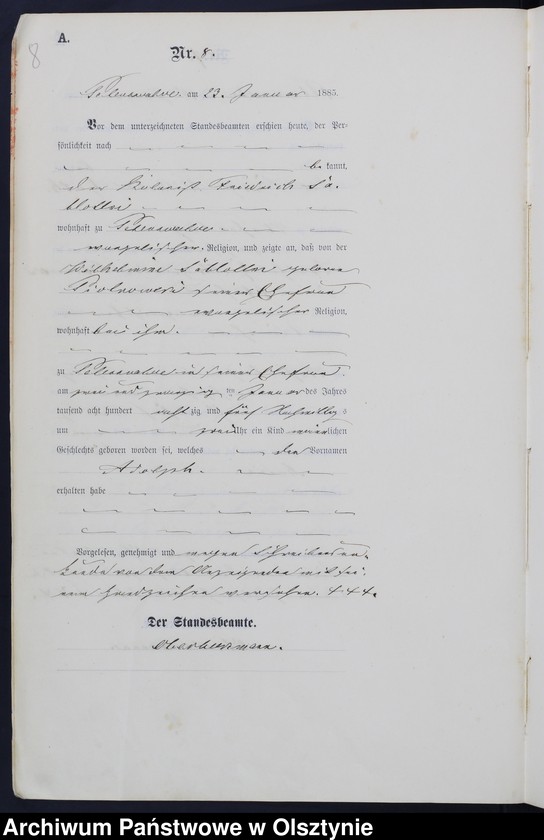 8
A.
Nr. 8.
am 23. Januar 1885.
Vor dem unterzeichneten Standesbeamten erschien heute, der Per-
sönlichkeit nach
be kannt,
der Kolonist Friedrich
wohnhaft zu
evangelischer Religion, und zeigte an, daß von der
Wilhelmine geborene
seiner Ehefrau
evangelischer Religion,
wohnhaft bei ihm.
zu in seiner Ehefrau
am zwei und zwanzig ten Januar des Jahres
tausend acht hundert acht zig und fünf Nachmittags
um zwei Uhr ein Kind männlichen
Geschlechts geboren worden sei, welches den Vornamen
Adolph.
erhalten habe
Vorgelesen, genehmigt und wegen Schreibensun-
kunde von dem Anzeigenden mit sei-
nem Handzeichen versehen. +++.
Der Standesbeamte.
Archiwum Państwowe w Olsztynie